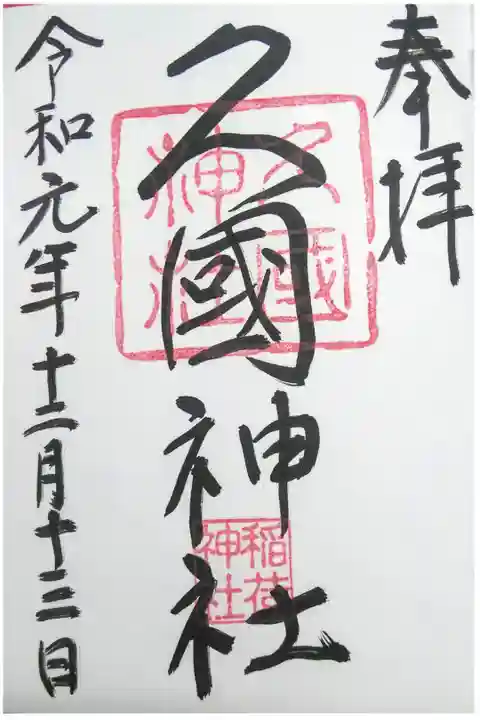 奉拝
久國神社
久國
神社
稲荷
神社
令和元年十二月十三日